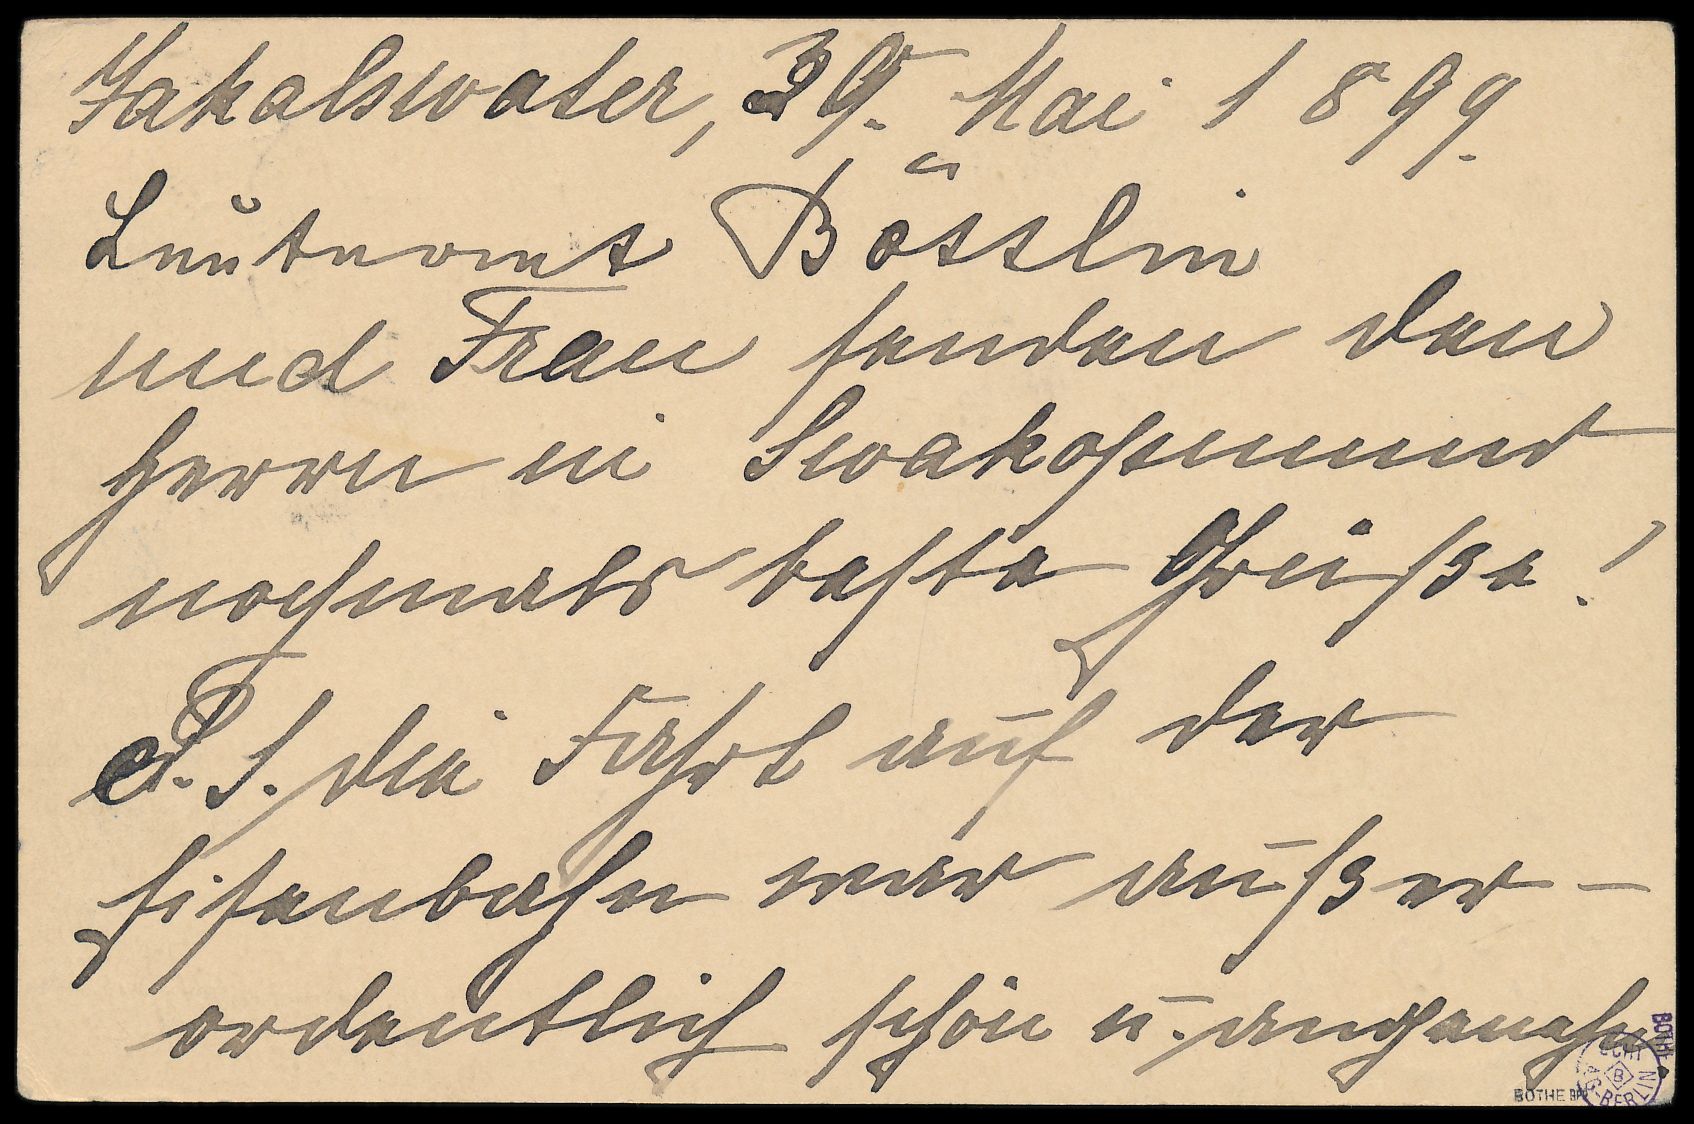 Jakalswater, 29. Mai 1899.
Leutnant Bösslin
und Frau senden den
Herrn in Swakopmund
nochmals beste Grüße!
P. S. die Fahrt auf der
Eisenbahn war außer-
ordentlich schön u. angenehm
BOTHE
ECHT
B
AG-BERLIN
BOTHE BPP